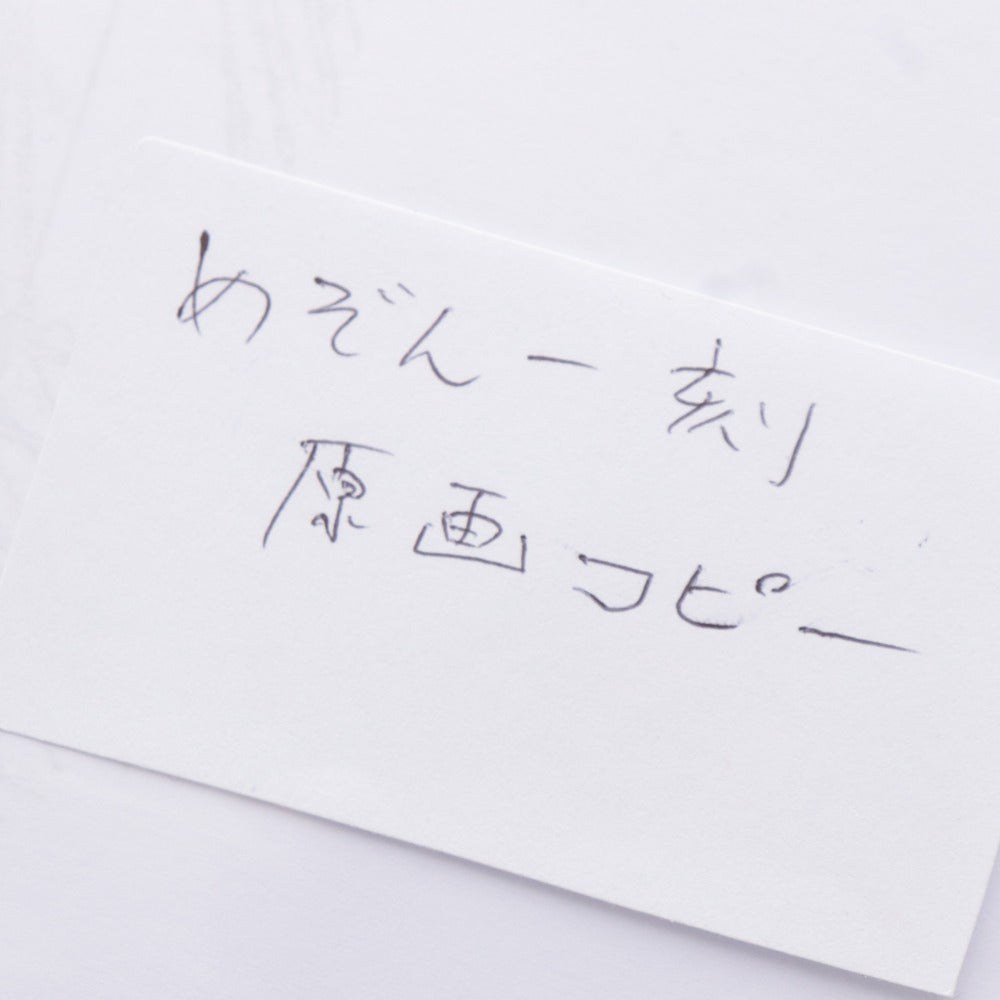 めぞん一刻
原画コピー